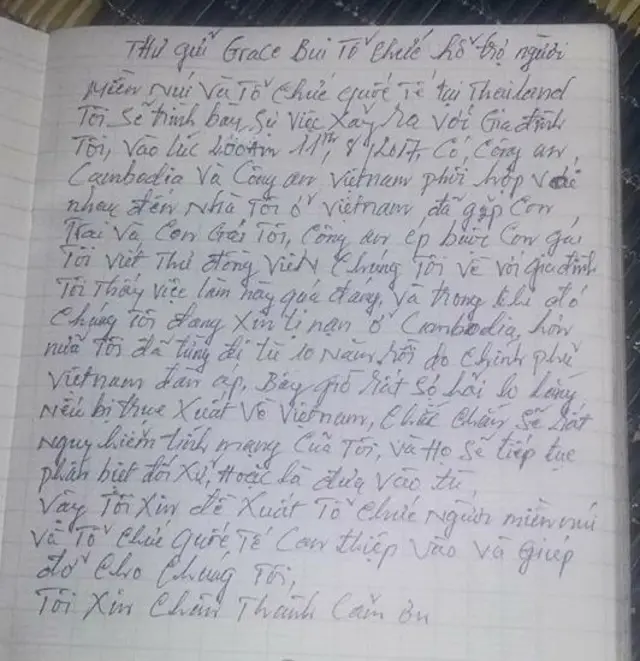 Thư gửi Grace Bui Tổ chức hỗ trợ người
Miền Núi Và Tổ Chức quốc Tế tại Thailand
Tôi Sẽ trình bày Sự Việc Xảy Ra Với Gia đình
Tôi, Vào lúc 1:00Am 11th, 8/2017, Có, Công an,
Cambodia Và Công an Vietnam phối hợp Với
nhau đến Nhà Tôi ở Vietnam đã gặp Con
Trai Và Con Gái Tôi, Công an ép buộc Con gái
Tôi Viết Thư động Viên Chúng Tôi Về Với gia đình
Tôi Thấy Việc làm này quá đáng, Và trong khi đó
Chúng Tôi đang Xin tị nạn ở Cambodia, hơn
nữa Tôi đã từng đi tù 10 Năm, rồi do Chính phủ
Vietnam đàn áp, Bây giờ Rất Sợ hãi lo lắng
Nếu bị trục Xuất Về Vietnam, Chắc Chắn Sẽ Rất
Nguy hiểm tính mạng Của Tôi, Và Họ Sẽ tiếp tục
phân biệt đối Xử, Hoặc là đưa Vào tù
Vậy Tôi Xin đề Xuất Tổ Chức Người miền núi
Và Tổ Chức Quốc Tế Can thiệp Vào Và Giúp
đỡ Cho Chúng Tôi,
Tôi Xin Chân Thành Cảm Ơn